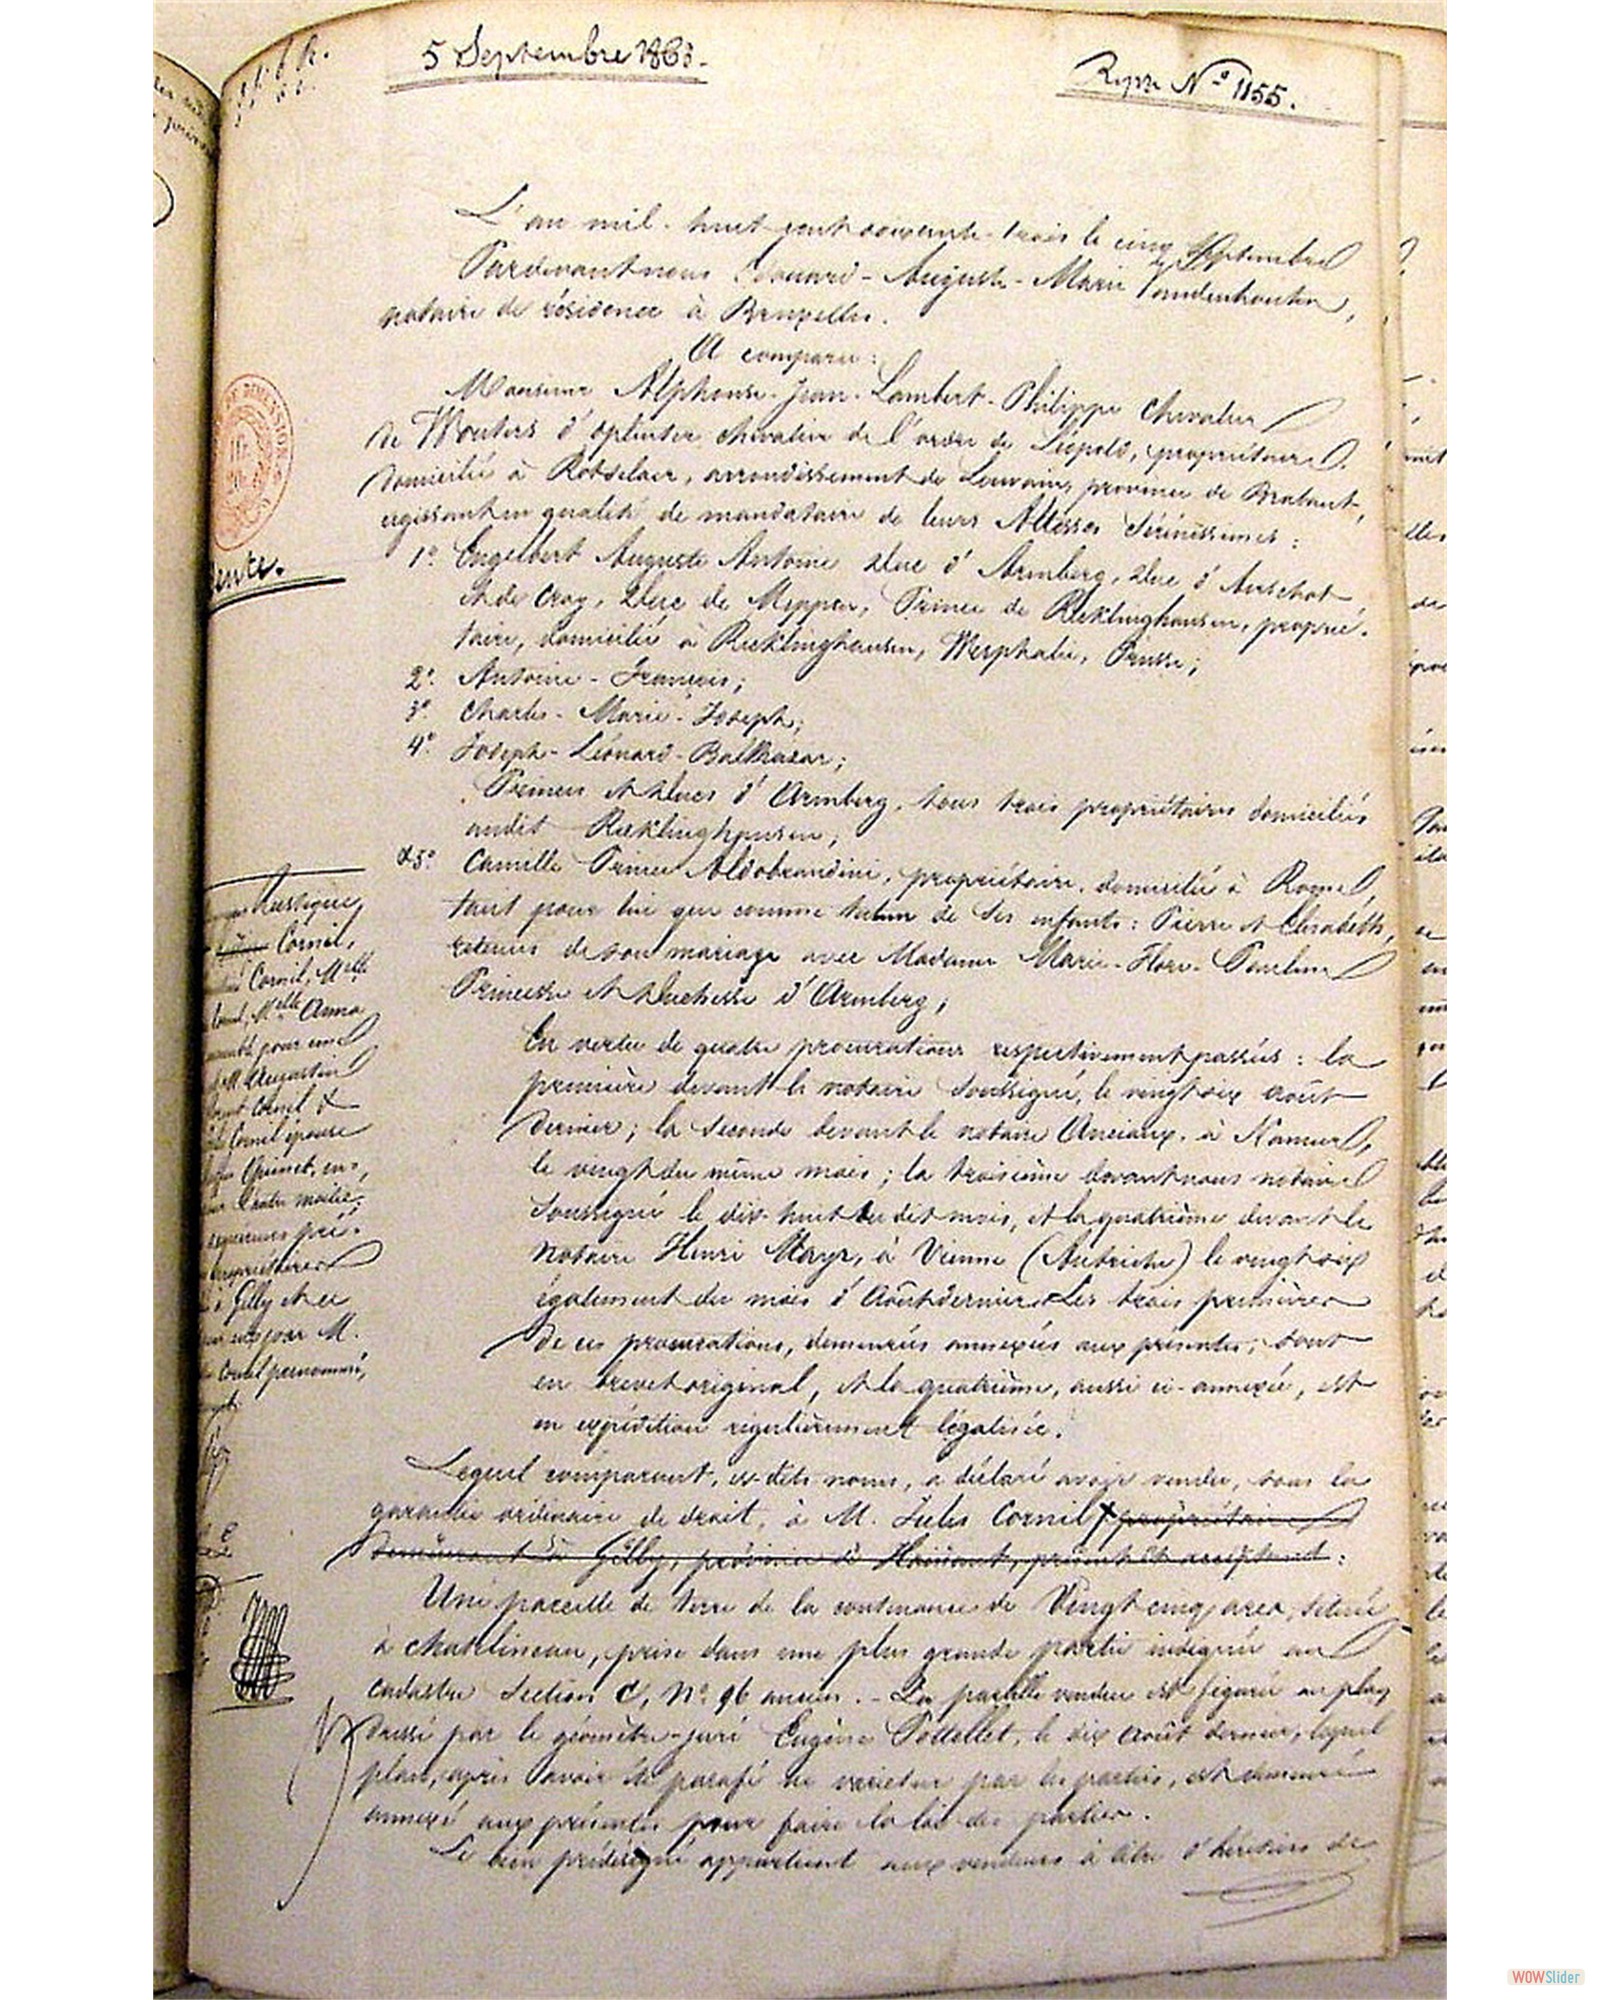 5 Septembre 1863.
Rep.re N.o 1155.
L'an mil-huit cent soixante-trois le cinq Septembre
Pardevant nous Edouard-Auguste-Marie Vandenhouten,
notaire de résidence à Bruxelles.
A comparu:
Monsieur Alphonse-Jean-Lambert-Philippe chevalier
de Wouters d'oplinter, chevalier de l'ordre de Léopold, propriétaire
domicilié à Rotselaer, arrondissement de Louvain, province de Brabant,
agissant en qualité de mandataire de leurs Altesses Sérénissimes:
ente.
1.o Engelbert Auguste Antoine Duc d'Aremberg, Duc d'Aerschot
et de Croy, Duc de Meppen, Prince de Recklinghausen, proprié-
taire, domicilié à Recklinghausen, Wesphalie, Prusse;
2.o Antoine-François;
3.o Charles-Marie-Joseph;
4.o Joseph-Léonard-Balthazar;
Princes et Ducs d'Aremberg, tous trois propriétaires domiciliés
audit Recklinghausen;
&5.o Camille Prince Aldobrandini, propriétaire, domicilié à Rome,
tant pour lui que comme tuteur de ses enfants: Pierre et Elisabeth,
retenus de son mariage avec Madame Marie-Flore-Pauline
Princesse et Duchesse d'Aremberg;
En vertu de quatre procurations respectivement passées: la
première devant le notaire soussigné, le vingt six août
dernier; la seconde devant le notaire Anciaux, à Namur,
le vingt du même mois; la troisième devant nous notaire
soussigné le dix-huit du dit mois, et la quatrième devant le
notaire Henri Mayr, à Vienne (Autriche) le vingt six
également du mois d'Août dernier. Les trois premières
de ces procurations, demeurées annexées aux présentes, sont
en brevet original, et la quatrième, aussi ci-annexée, est
en expédition régulièrement légalisée.
Lequel comparant, es-dits noms, a déclaré avoir vendu, sous la
garantie ordinaire de droit, à M. Jules Cornil propriétaire
demeurant à Gilly, province de Hainaut, présent et acceptant:
Une parcelle de terre de la contenance de Vingt cinq ares, située
à Chatelineau, prise dans une plus grande partie indiquée au
cadastre Section C, N.o 96 ancien. - La parcelle vendue est figurée au plan
dressé par le géomètre-juré Eugène Pottellet, le dix août dernier, lequel
plan, après avoir été parafé ne varietur par les parties, est demeuré
annexé aux présentes pour faire la loi des parties.
Le bien prédésigné appartient aux vendeurs à titre d'héritiers de
Rustique
Cornil,
Cornil, Melle
Melle Anna
pour une
M. Augustin
Cornil &
Cornil épouse
Quinet, en-
l'autre moitié
pré-
propriétaires
à Gilly et
par M.
Cornil prénommé,
WOWSlider